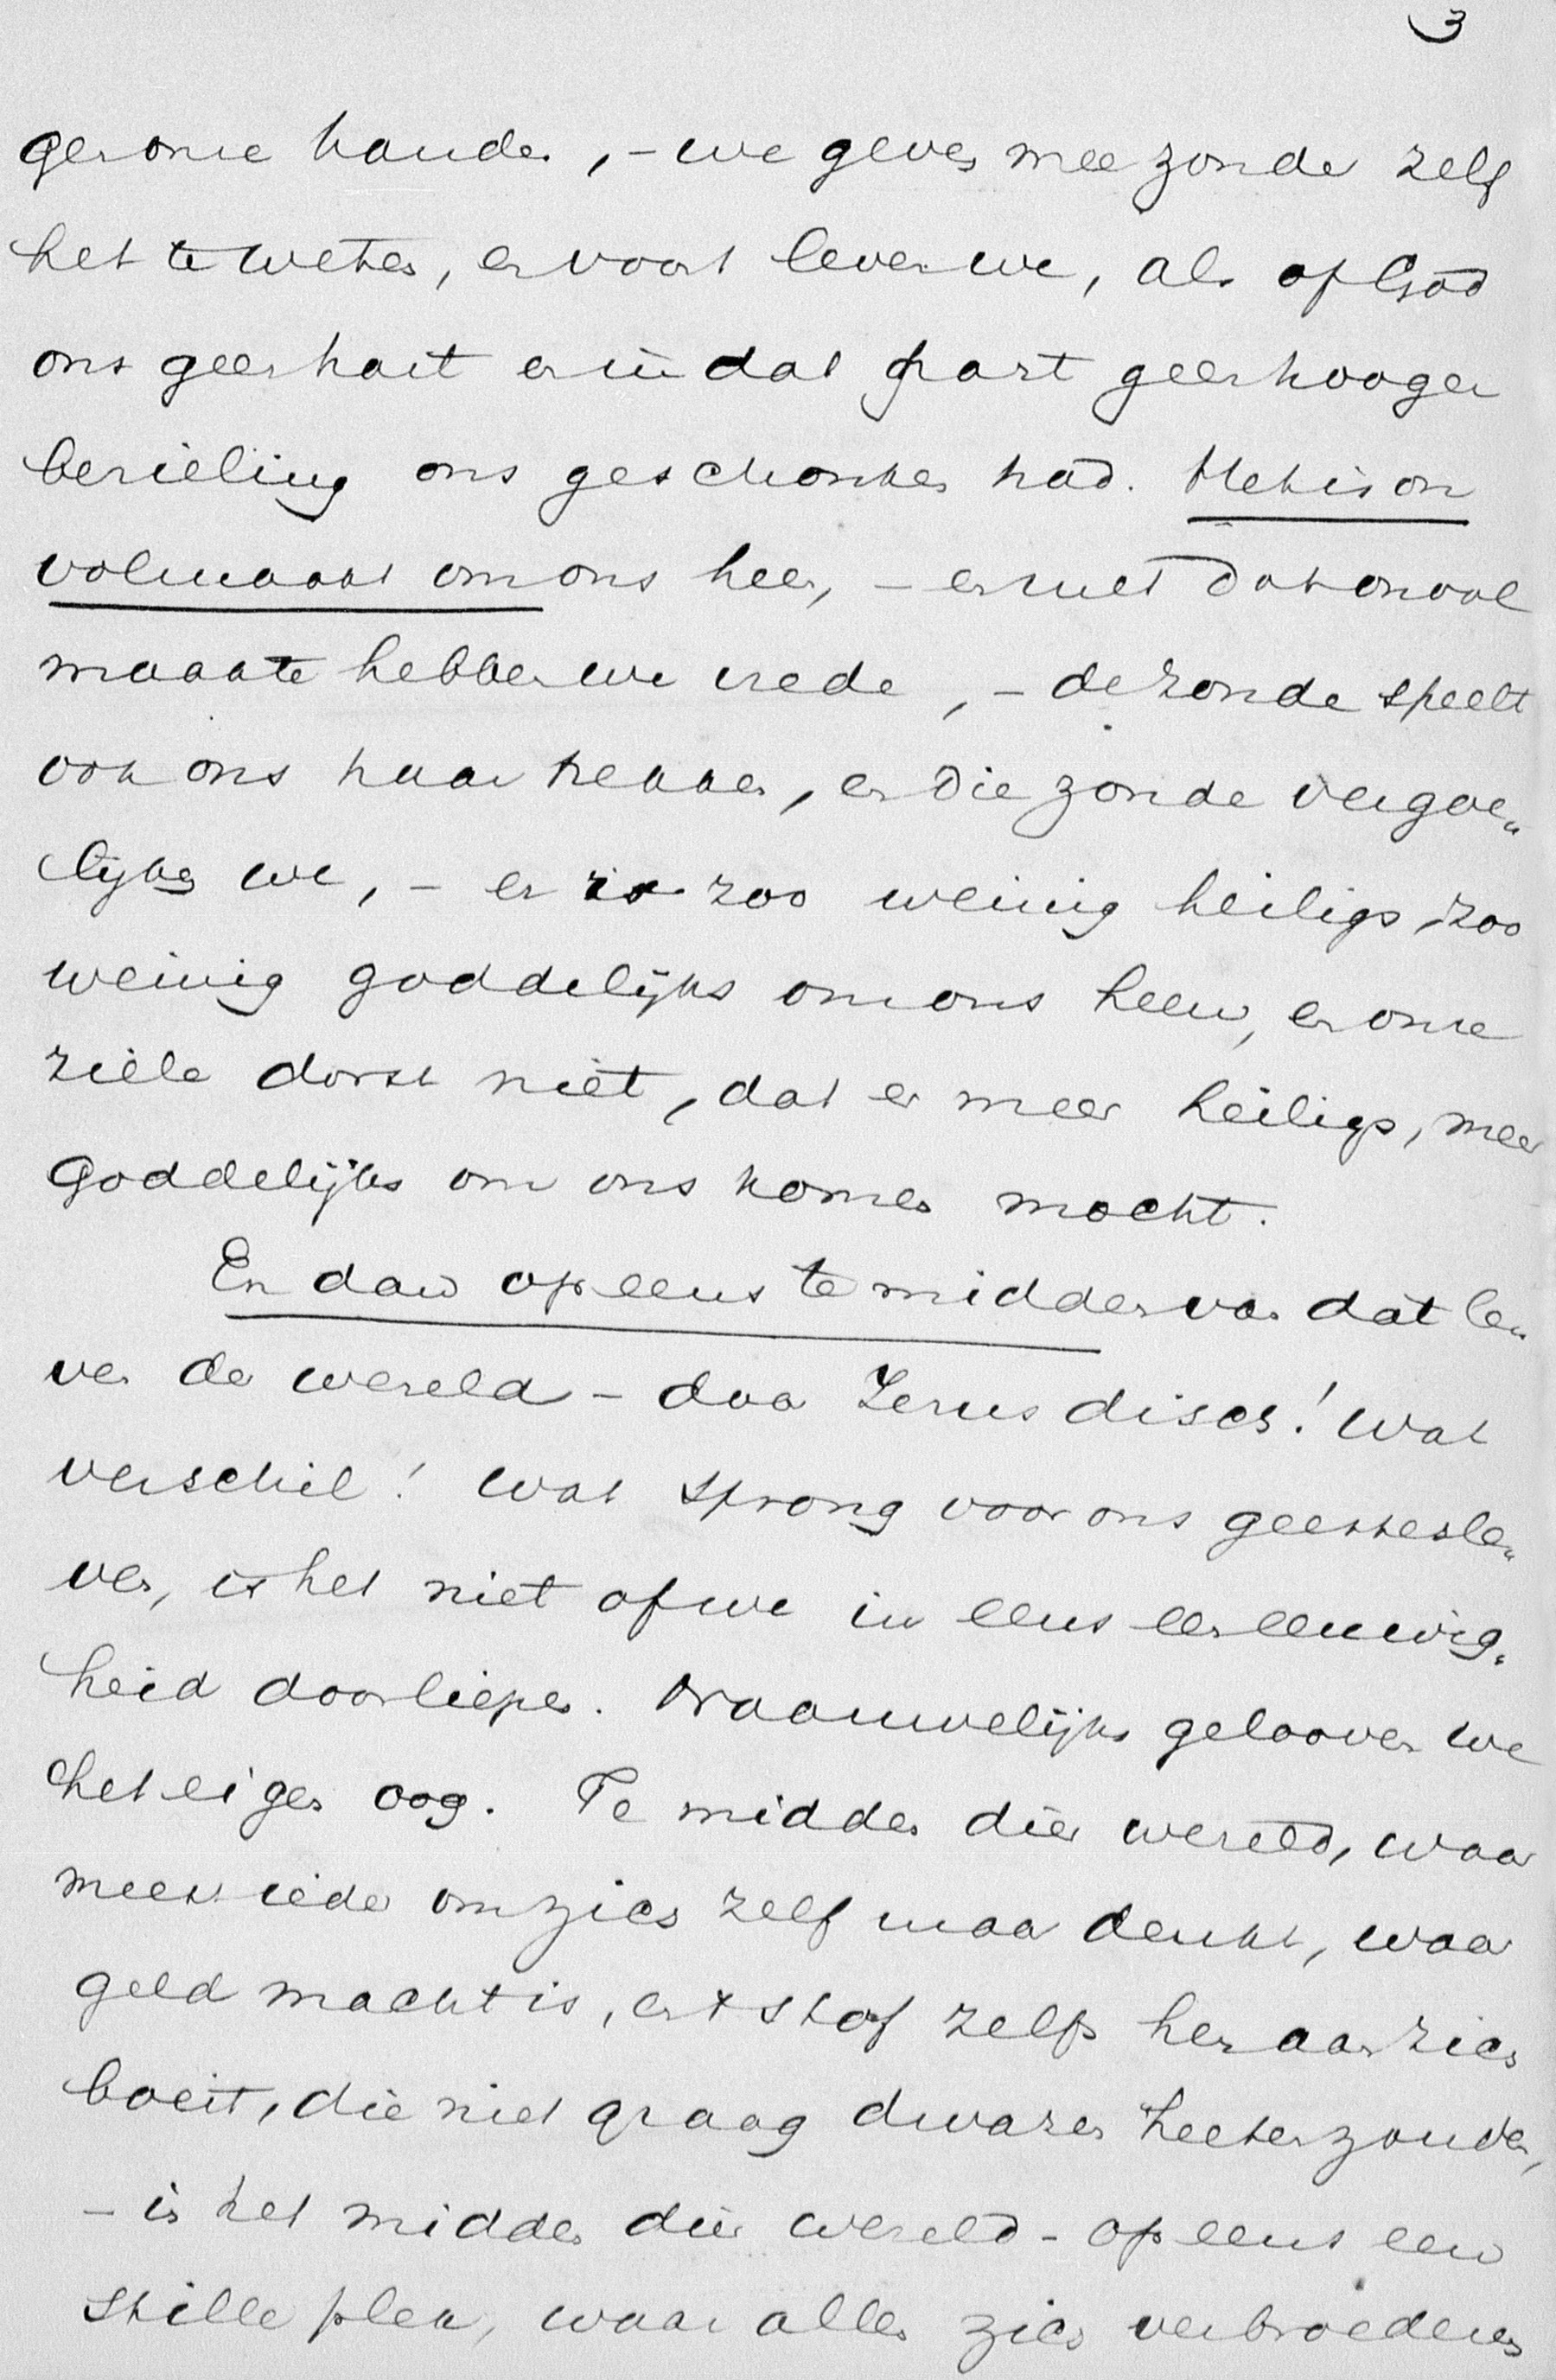 3
gezonde handen, – we geven mee zonder zelf
het te weten, en voort leven we, als of God
ons geen hart en in dat hart geen hooger
bezieling ons geschonken had. Het is on
volmaakt om ons heen, – en met dat onvol
maakte hebben we vrede, – de zonde speelt
ook ons haar trekken, en die zonde vergoe„
lijken we, – er is zoo weinig heiligs, zoo
weinig goddelijks om ons heen, en onze
ziele dorst niet, dat er meer heiligs, meer
goddelijks om ons komen mocht.
En dan opeens te midden van dat le„
ven der wereld – daar Jezus disch! Wat
verschil! Wat sprong voor ons geestesle„
ven, is het niet of we in eens een eeuwig„
heid doorliepen. Nauwelijks gelooven we
het eigen oog. Te midden dier wereld, waar
meest ieder om zich zelf maar denkt, waar
geld macht is, en stof zelfs hen aan zich
boeit, die niet graag dwazen heeten zouden,
– is het midden dier wereld – opeens een
stille plek, waar allen zich verbroederen